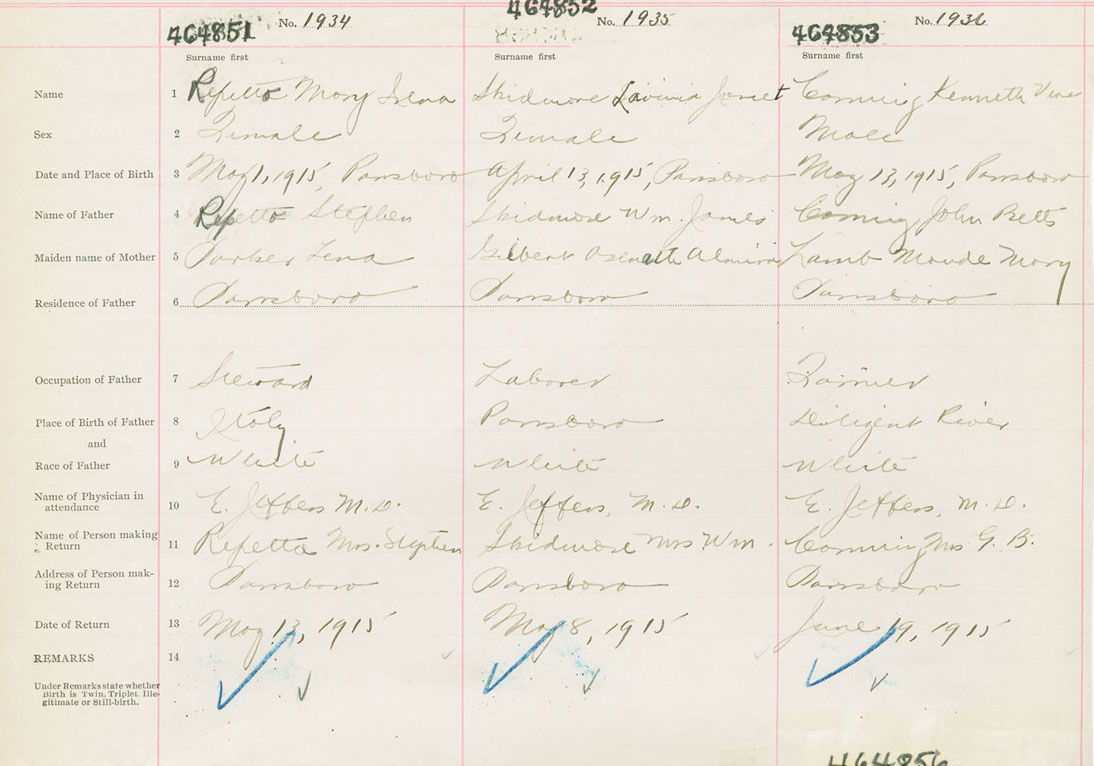 464851 No. 1934 464852 No. 1935 464853 No. 1936
Surname first Surname first Surname first
Name 1 Repetto Mary Irena Skidmore Lavinia Janet Corning Kenneth
Sex 2 Female Female Male
Date and Place of Birth 3 May 1, 1915, Parrsboro April 13, 1915, Parrsboro May 13, 1915, Parrsboro
Name of Father 4 Repetto Stephen Skidmore Wm. James Corning John Betts
Maiden name of Mother 5 Parker Lena Gilbert Asenath Almira Lamb Maude Mary
Residence of Father 6 Parrsboro Parrsboro Parrsboro
Occupation of Father 7 Steward Laborer Farmer
Place of Birth of Father 8 Italy Parrsboro Diligent River
and
Race of Father 9 White White White
Name of Physician in
attendance 10 E. Jeffers M.D. E. Jeffers, M.D. E. Jeffers, M.D.
Name of Person making
Return 11 Repetto Mrs. Stephen Skidmore Mrs Wm. Corning Mrs G. B.
Address of Person mak-
ing Return 12 Parrsboro Parrsboro Parrsboro
Date of Return 13 May 13, 1915 May 8, 1915 June 19, 1915
REMARKS 14
Under Remarks state whether
Birth is Twin, Triplet, Ille-
gitimate or Still-birth.
464856